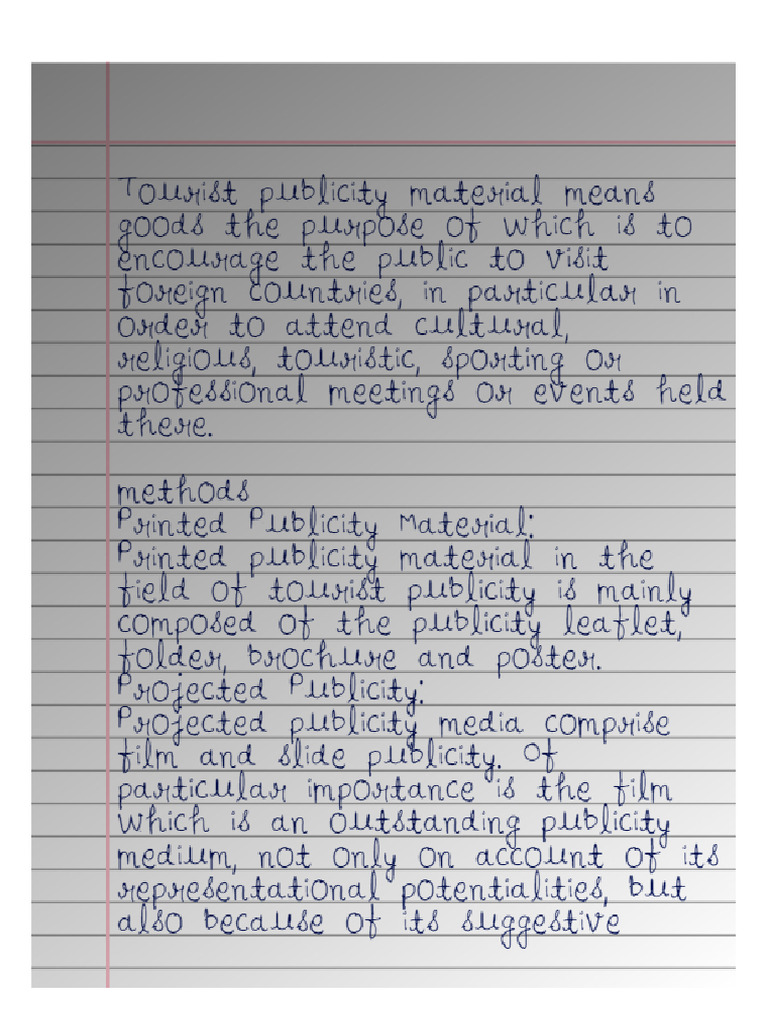 Tourist publicity material means
goods the purpose of which is to
encourage the public to visit
foreign countries, in particular in
order to attend cultural,
religious, touristic, sporting or
professional meetings or events held
there.
methods
Printed Publicity Material:
Printed publicity material in the
field of tourist publicity is mainly
composed of the publicity leaflet,
folder, brochure and poster.
Projected Publicity:
Projected publicity media comprise
film and slide publicity. Of
particular importance is the film
which is an outstanding publicity
medium, not only on account of its
representational potentialities, but
also because of its suggestive